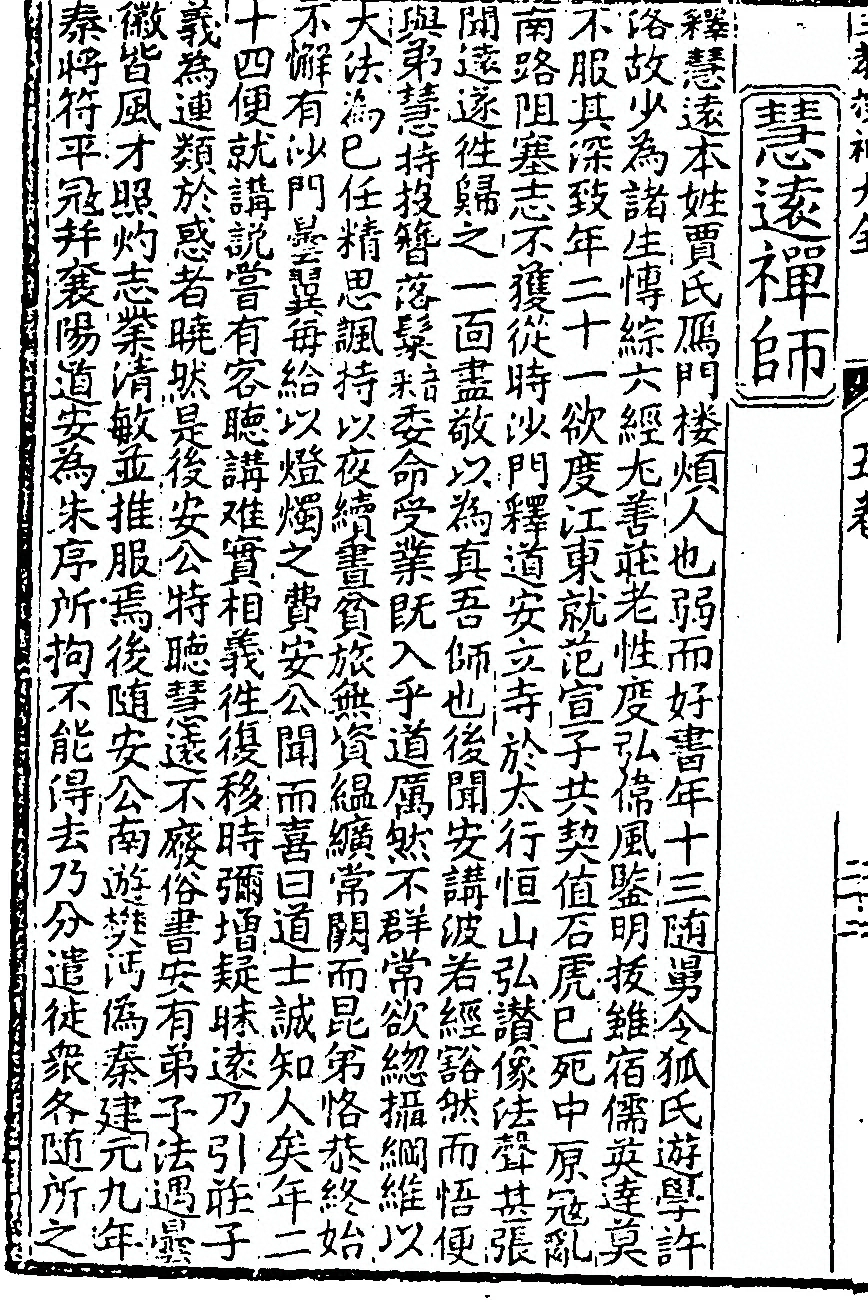 慧遠禪師
釋慧遠本姓賈氏鴈門楼煩人也弱而好書年十三随舅令狐氏遊學許
洛故少為諸生慱綜六經尤善莊老性度弘偉風鑒明拔雖宿儒英達莫
不服其深致年二十一欲度江東就范宣子共契值石虎已死中原冦亂
南路阻塞志不獲從時沙門釋道安立寺於太行恒山弘讃像法聲甚張
聞遠遂徃歸之一面盡敬以為真吾師也後聞安講波若經豁然而悟便
與弟慧持投簪落䰂釆音委命受業既入乎道厲然不群常欲緫攝綱維以
大法為已任精思諷持以夜續晝貧旅無資緼纊常闕而昆弟恪恭終始
不懈有沙門曇翼每給以燈燭之費安公聞而喜曰道士誠知人矣年二
十四便就講說嘗有客聽講难實相義徃復移時彌增疑昧遠乃引莊子
義為連類於惑者曉然是後安公特聽慧遠不廢俗書安有弟子法遇曇
徽皆風才照灼志業清敏並推服焉後随安公南遊樊沔偽秦建元九年
秦將符平冦并襄陽道安為朱序所拘不能得去乃分遣徒衆各随所之
五卷
二十二